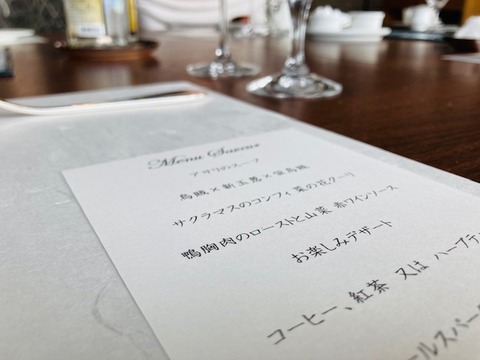 Menu Saveur
アサリのスープ
烏賊×新玉葱×
サクラマスのコンフィ 菜の花クーリ
鴨胸肉のローストと山菜 赤ワインソース
お楽しみデザート
コーヒー、紅茶 又は ハーブテ
ルスパーク